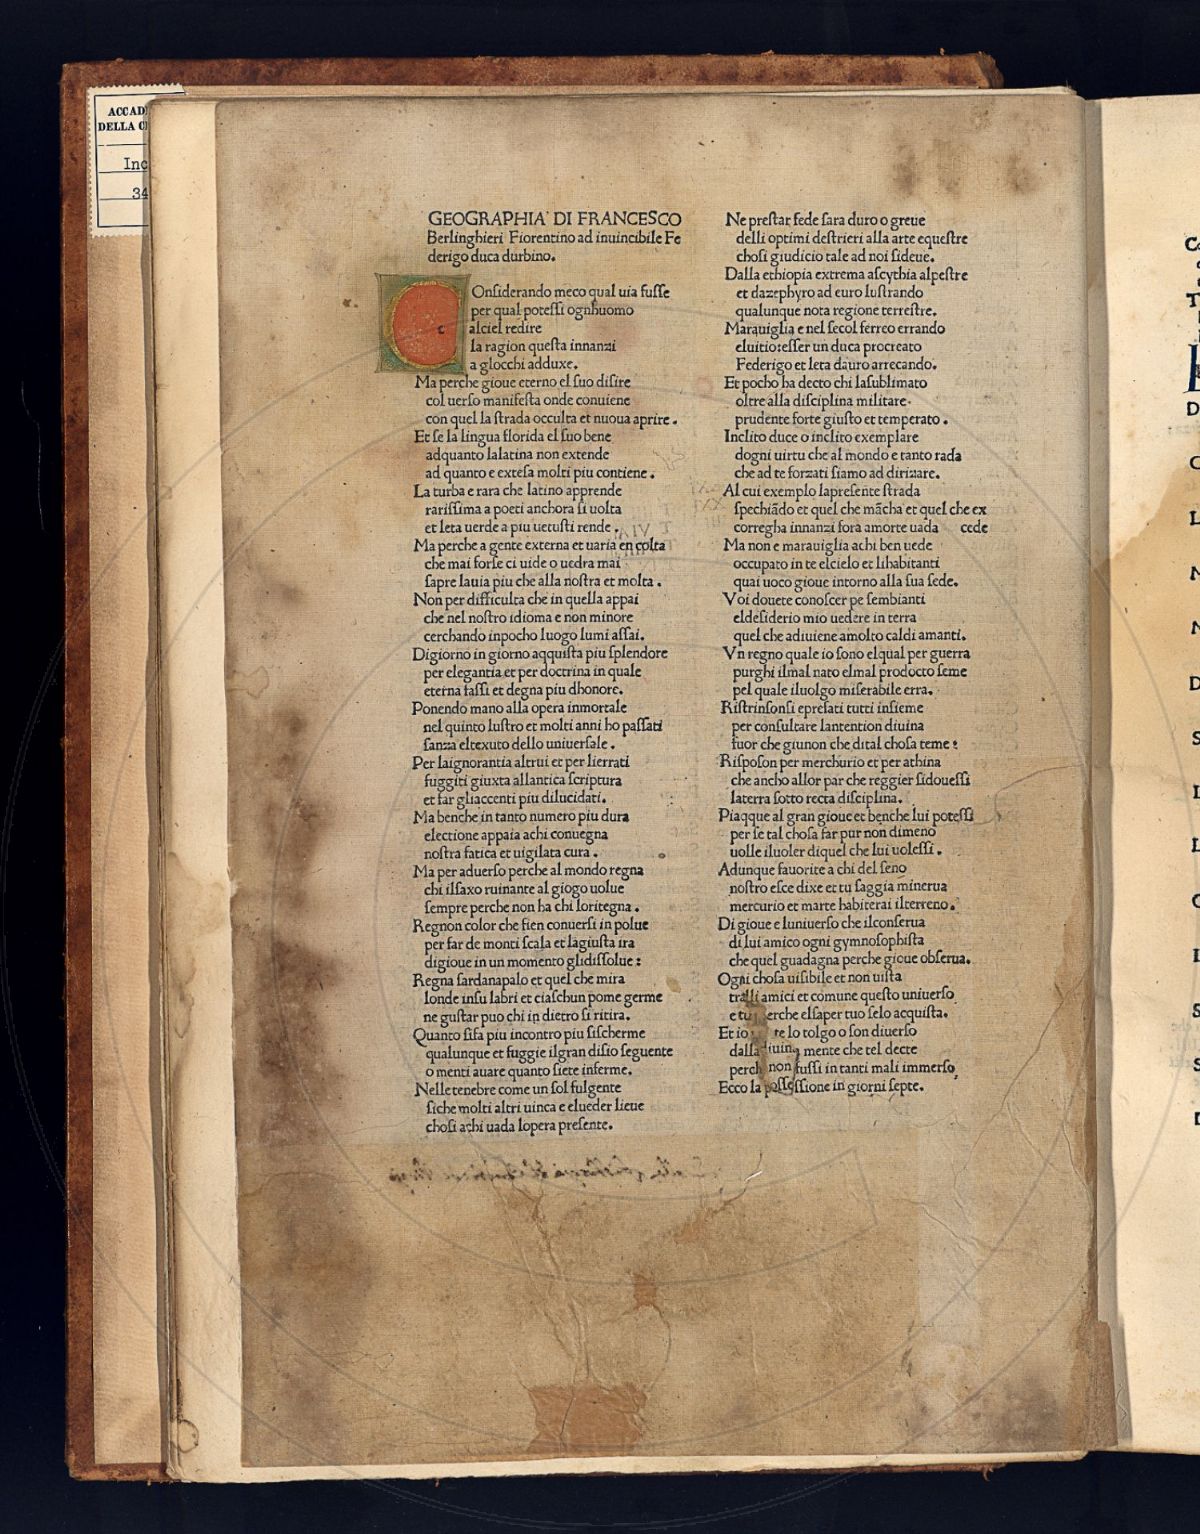 ACCAD
DELLA C
Inc
34
GEOGRAPHIA DI FRANCESCO
Berlinghieri Fiorentino ad inuincibile Fe
derigo duca durbino.
Onſiderando meco qual uia fuſſe
per qual poteſſi ognhuomo
c alciel redire
la ragion queſta innanzi
a glocchi adduxe.
Ma perche gioue eterno el ſuo diſire
col uerſo manifeſta onde conuiene
con quel la ſtrada occulta et nuoua aprire.
Et ſe la lingua florida el ſuo bene
adquanto lalatina non extende
ad quanto e exteſa molti piu contiene.
La turba e rara che latino apprende
rariſſima a poeti anchora ſi uolta
et leta uerde a piu uetuſti rende.
Ma perche a gente externa et uaria en colta
che mai forſe ci uide o uedra mai
ſapre lauia piu che alla noſtra et molta.
Non per difficulta che in quella appai
che nel noſtro idioma e non minore
cerchando inpocho luogo lumi aſſai.
Digiorno in giorno aqquiſta piu ſplendore
per elegantia et per doctrina in quale
eterna faſſi et degna piu dhonore.
Ponendo mano alla opera inmortale
nel quinto luſtro et molti anni ho paſſati
ſanza eltexuto dello uniuerſale.
Per laignorantia altrui et per lierrati
fuggiti giuxta allantica ſcriptura
et far gliaccenti piu dilucidati.
Ma benche in tanto numero piu dura
electione appaia achi conuegna
noſtra fatica et uigilata cura.
Ma per aduerſo perche al mondo regna
chi ilſaxo ruinante al giogo uolue
ſempre perche non ha chi loritegna.
Regnon color che fien conuerſi in polue
per far de monti ſcala et lagiuſta ira
digioue in un momento glidiſſolue:
Regna ſardanapalo et quel che mira
londe inſu labri et ciaſchun pome germe
ne guſtar puo chi in dietro ſi ritira.
Quanto ſiſa piu incontro piu ſiſcherme
qualunque et fuggie ilgran diſio ſeguente
o menti auare quanto ſiete inferme.
Nelle tenebre come un ſol fulgente
ſiche molti altri uinca e elueder lieue
choſi achi uada lopera preſente.
Ne preſtar fede ſara duro o greue
delli optimi deſtrieri alla arte equeſtre
choſi giudicio tale ad noi ſideue.
Dalla ethiopia extrema aſcythia alpeſtre
et dazephyro ad euro luſtrando
qualunque nota regione terreſtre.
Marauiglia e nel ſecol ferreo errando
eluitio: eſſer un duca procreato
Federigo et leta dauro arrecando.
Et pocho ha decto chi laſublimato
oltre alla diſciplina militare.
prudente forte giuſto et temperato.
Inclito duce o inclito exemplare
dogni uirtu che al mondo e tanto rada
che ad te forzati ſiamo ad dirizare.
Al cui exemplo lapreſente ſtrada
ſpechiãdo et quel che mãcha et quel che ex
corregha innanzi fora amorte uada cede
Ma non e marauiglia achi ben uede
occupato in te elcielo et lihabitanti
quai uoco gioue intorno alla ſua ſede.
Voi douete conoſcer pe ſembianti
eldeſiderio mio uedere in terra
quel che adiuiene amolto caldi amanti.
Vn regno quale io ſono elqual per guerra
purghi ilmal nato elmal prodocto ſeme
pel quale iluolgo miſerabile erra.
Riſtrinſonſi epreſati tutti inſieme
per conſultare lantention diuina
fuor che giunon che dital choſa teme:
Riſpoſon per merchurio et per athina
che ancho allor par che reggier ſidoueſſi
laterra ſotto recta diſciplina.
Piaqque al gran gioue et benche lui poteſſi
per ſe tal choſa far pur non dimeno
uolle iluoler diquel che lui uoleſſi.
Adunque fauorite a chi del ſeno
noſtro eſce dixe et tu ſaggia minerua
mercurio et marte habiterai ilterreno.
Di gioue e luniuerſo che ilconſerua
di lui amico ogni gymnoſophiſta
che quel guadagna perche gioue obſerua.
Ogni choſa uiſibile et non uiſta
tralli amici et comune queſto uniuerſo
e tu perche elſaper tuo ſelo acquiſta.
Et io te lo tolgo o ſon diuerſo
dalla diuina mente che tel dette
perche non fuſſi in tanti mali immerſo
Ecco la poſſeſſione in giorni ſepte.